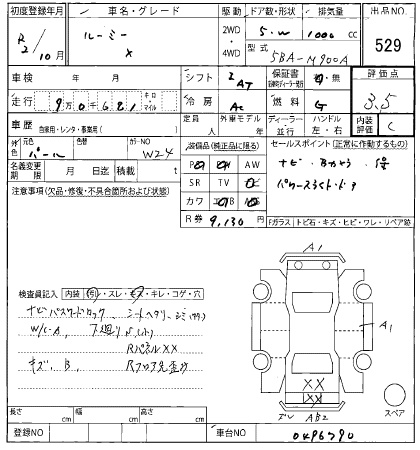 初度登録年月 車名・グレード 駆動 ドア数・形状 排気量 出品NO
R2/10月 ルーミー 2WD・4WD 5.W 1000cc 529
X 型式 5BA-M900A
車検 年 月 シフト 2AT 保証書 有・無 評価点
走行 9万0千681 キロ マイル 冷房 AC 燃料 G 3.5
車歴 自家用・レンタ・事業用( ) 定員 人 外車モデル 年 ディーラー 並行 ハンドル 左・右 内装評価 C
外色 元色 パール 色替 カラーNO W24
装備品(純正品に限る) セールスポイント(正常に作動するもの)
名義変更期限 月 日迄 積載 t
AW
ナビ Bカメラ
注意事項(欠品・修復・不具合箇所および状態)
SR TV
パワースライドドア
カワ
R券 9,130 円
Fガラス トビ石・キズ・ヒビ・ワレ・リペア跡
A1
検査員記入 内装 スレ・キレ・コゲ・穴
ナビパスワードロック シートヘタリ・シミ
W/C-A 下廻りS
RパネルXX
キズ、B Rフロア
A1
XX
AB2
スペア
長さ cm 幅 cm 高さ cm
登録NO 車台NO 0496790